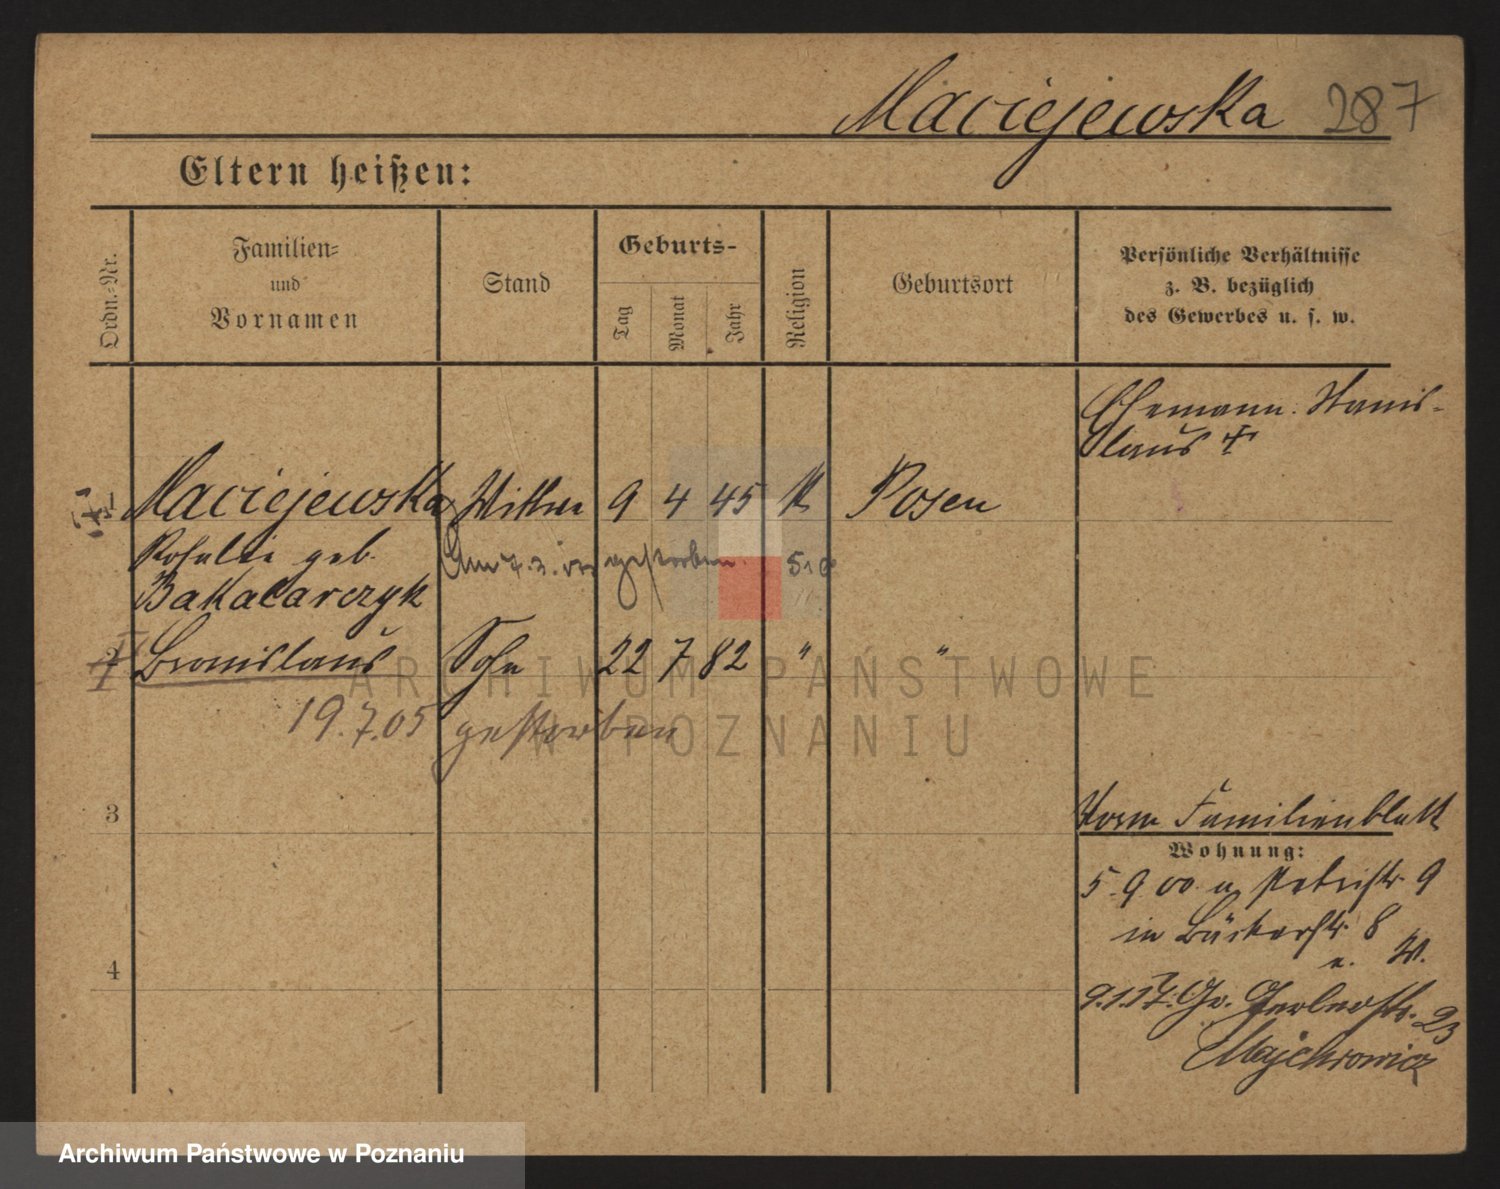 Maciejewska 287
Eltern heißen:
Ordn.-Nr.
Familien-
und
Vornamen
Stand
Geburts-
Tag
Monat
Jahr
Religion
Geburtsort
Persönliche Verhältnisse
z. B. bezüglich
des Gewerbes u. s. w.
Ehemann: Stanis-
laus †
1 Maciejewska Wittwe 9 4 45 K Posen
Rosalie geb. gestorben
Bakalarczyk
2 Bronislaus Sohn 22 7 82 " "
19.7.05 gestorben
ARCHIWUM PAŃSTWOWE
W POZNANIU
3
Vorm Familienblatt
Wohnung:
5 9 00 n Petristr. 9
in Bäckerstr. 8
4
9.1.17. Gr. Gerberstr. 23
Majchrowicz
Archiwum Państwowe w Poznaniu